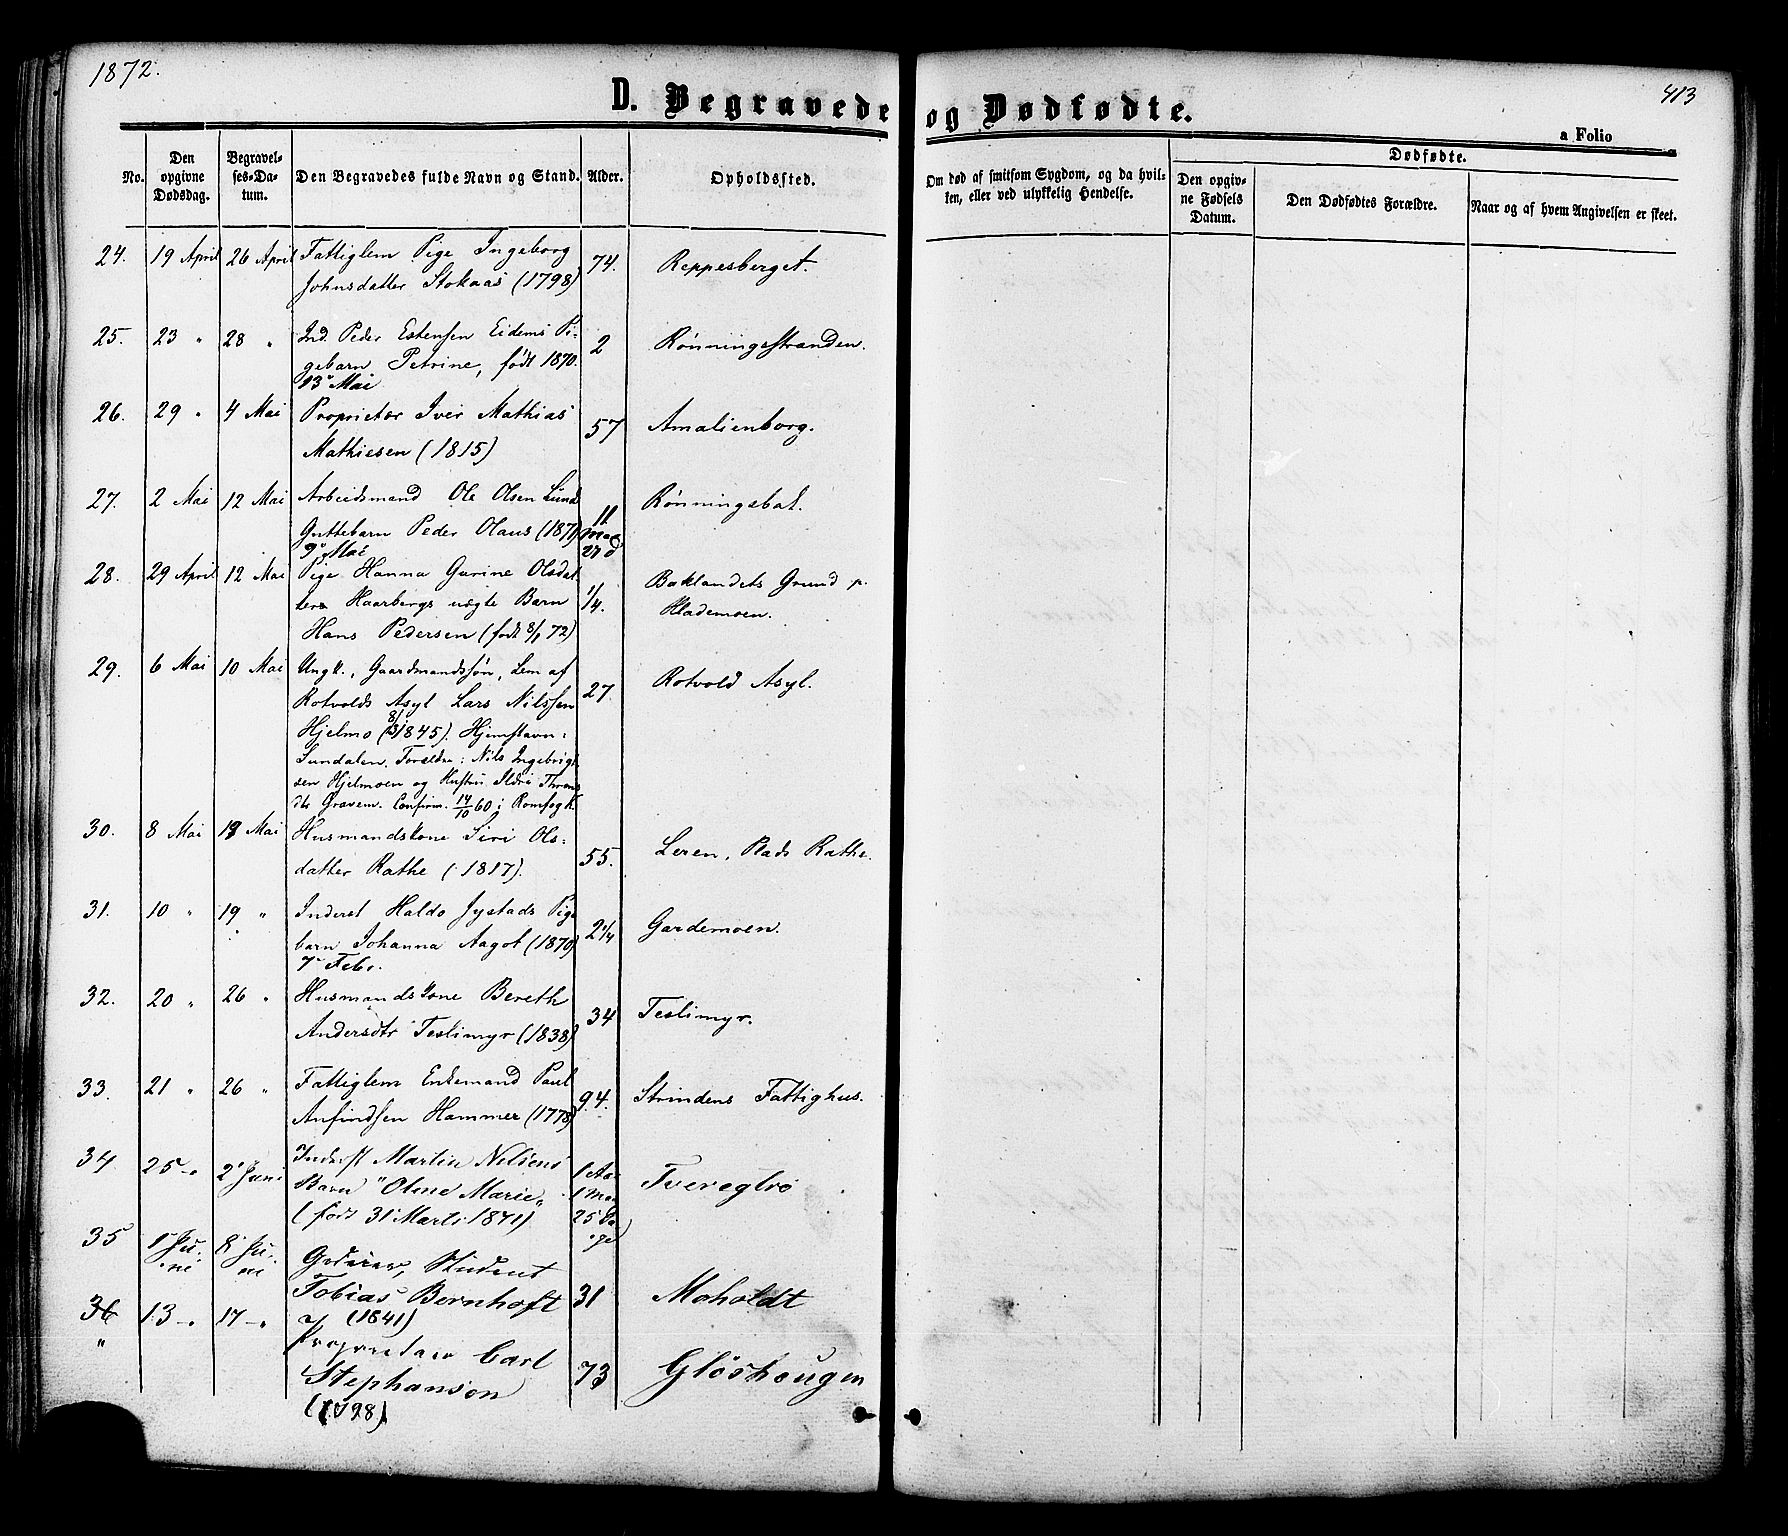 1872.
413
D. Begravede og Dødfødte.
a Folio
No.
Den opgivne Dødsdag.
Begravelses-Datum.
Den Begravedes fulde Navn og Stand.
Alder.
Opholdssted.
Om død af smitsom Sygdom, og da hvilken, eller ved ulykkelig Hendelse.
Dødfødte.
Den opgivne Fødsels Datum.
Den Dødfødtes Forældre.
Naar og af hvem Angivelsen er skeet.
24. 19 April 26 April Fattiglem Pige Ingeborg 74. Reppesberget.
Johnsdatter Stokaas (1798)
25. 23 " 28 " Ind. Peder Estensen Eidems Pi- 2 Rønningsstranden.
gebarn Petrine, født 1870.
13 Mai
26. 29 " 4 Mai Proprietær Iver Mathias 57 Amalienborg.
Mathiesen (1815)
27. 2 Mai 12 Mai Arbeidsmand Ole Olsen Lunds 11 Rønningsbak.
Guttebarn Peder Olaus (1871)
9 Mai
28. 29 April 12 Mai Pige Hanna Gurine Olsdat 1/4. Baklandets Grund p.
ters Haarbergs uægte Barn Hlademoen.
Hans Pedersen (født 8/1 72)
29. 6 Mai 10 Mai Ungk., Gaardmandssøn, Lem af 27. Rotvold Asyl.
Rotvolds Asyl Lars Nilssen
Hjelmo (8/3 1845). Hjemstavn:
Sundalen. Forældre: Nils Ingebrigt
sen Hjelmoen og Hustru Ildri Thronds
dtr Gravem. Confirm. 14/10 60 i Romfog K.
30. 8 Mai 18 Mai Husmandskone Siri Ols- 55. Leren, Plads Rathe.
datter Rathe (1817).
31. 10 " 19 " Inderst Haldo Jystads Pige 2 1/4 Gardemoen.
barn Johanna Aagot (1870)
7 Febr.
32. 20 " 26 " Husmandskone Bereth 34 Teslimyr.
Andersdtr Teslimyr (1838)
33. 21 " 26 " Fattiglem Enkemand Paul 94. Strindens Fattighus.
Anfindsen Hammer (1778)
34. 25 " 2 Juni Inderst Martin Nilsens 1 Aar Tvereggtrø
Barn "Oline Marie" 1 Mai
(født 31 Marts 1871) 25 Da
ge)
35 1 Ju- 8 Ju-
ni ni
Student
Tobias Bernhoft 31 Moholdt
(1841)
36 13 " 17 " Proprietær Carl 73 Gløshaugen
Stephanson
(1798)